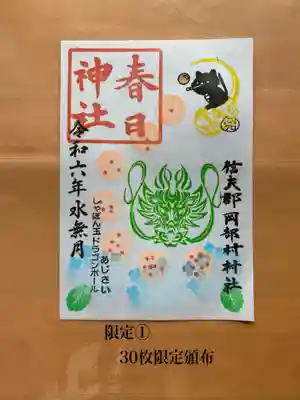 春日
神社
信夫郡 岡部村村社
あじさい
しゃぼん玉ドラゴンボール
令和六年水無月
限定①
30枚限定頒布